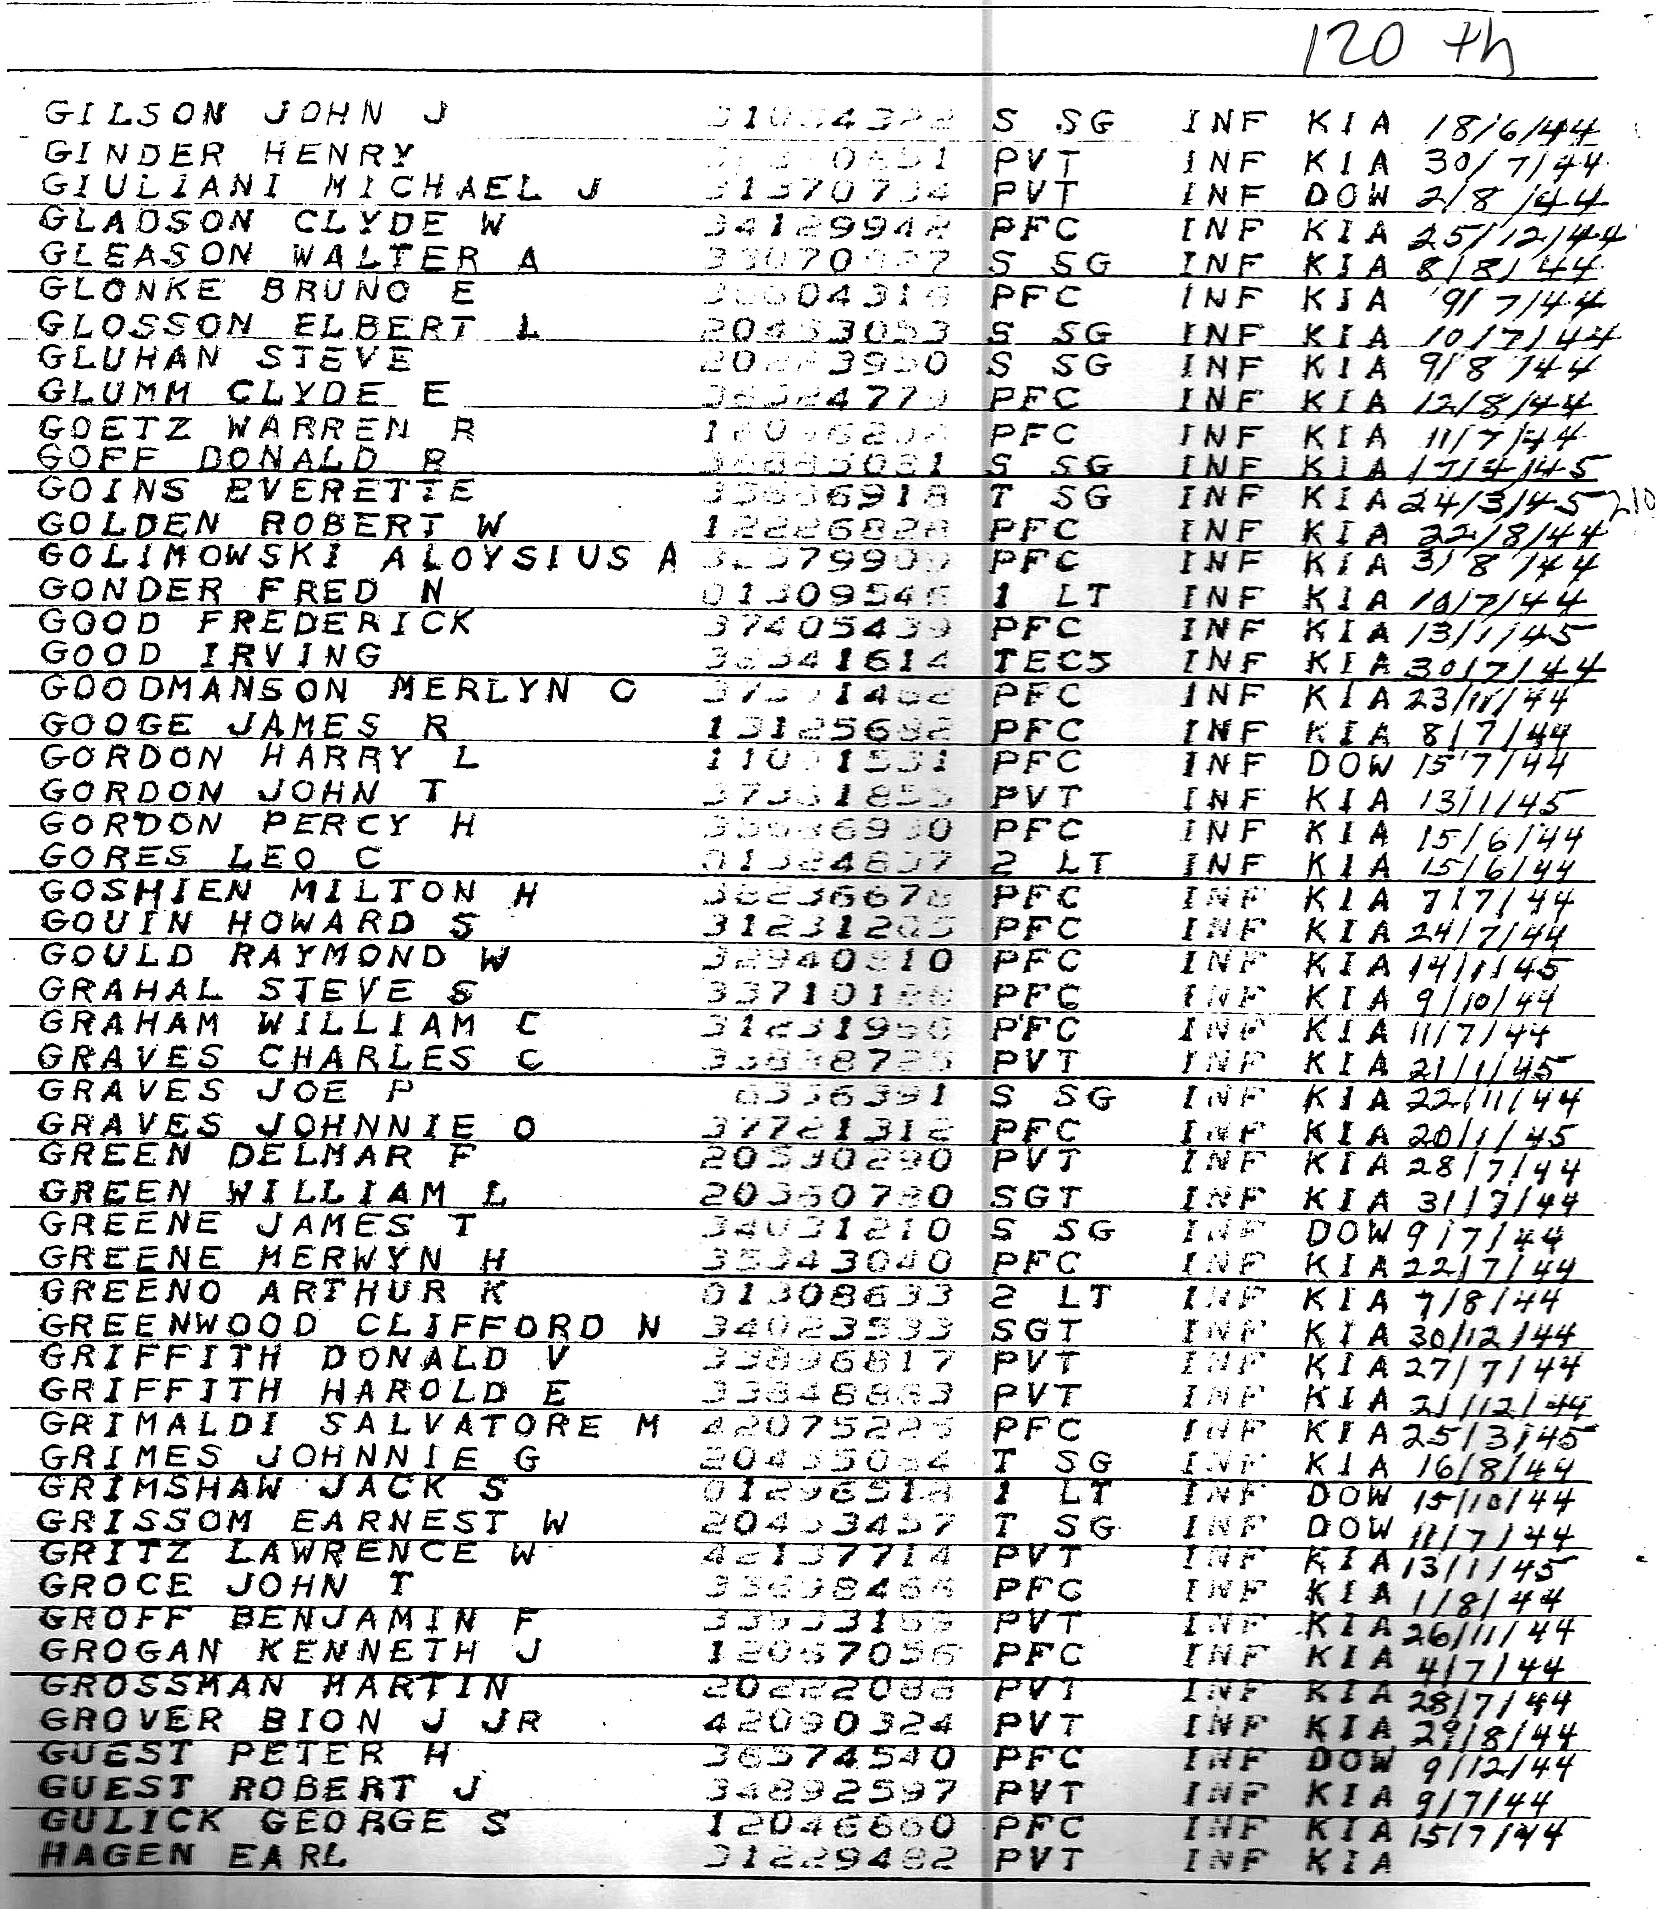 120 th
GILSON JOHN J S SG INF KIA 18/6/44
GINDER HENRY PVT INF KIA 30/7/44
GIULIANI MICHAEL J PVT INF DOW 2/8/44
GLADSON CLYDE W 34129942 PFC INF KIA 25/12/44
GLEASON WALTER A S SG INF KIA 8/8/44
GLONKE BRUNO E PFC INF KIA 9/7/44
GLOSSON ELBERT L 20453053 S SG INF KIA 10/7/44
GLUHAN STEVE S SG INF KIA 9/8/44
GLUMM CLYDE E PFC INF KIA 12/8/44
GOETZ WARREN R PFC INF KIA 11/7/44
GOFF DONALD R S SG INF KIA 17/4/45
GOINS EVERETTE T SG INF KIA 24/3/45
GOLDEN ROBERT W 12226828 PFC INF KIA 22/8/44
GOLIMOWSKI ALOYSIUS A PFC INF KIA 3/8/44
GONDER FRED N 1 LT INF KIA 10/7/44
GOOD FREDERICK 37405439 PFC INF KIA 13/1/45
GOOD IRVING TEC5 INF KIA 30/7/44
GOODMANSON MERLYN O PFC INF KIA 23/11/44
GOOGE JAMES R 13125682 PFC INF KIA 8/7/44
GORDON HARRY L PFC INF DOW 15/7/44
GORDON JOHN T PVT INF KIA 13/1/45
GORDON PERCY H PFC INF KIA 15/6/44
GORES LEO C 2 LT INF KIA 15/6/44
GOSHIEN MILTON H PFC INF KIA 7/7/44
GOUIN HOWARD S PFC INF KIA 24/7/44
GOULD RAYMOND W PFC INF KIA 14/1/45
GRAHAL STEVE S PFC INF KIA 9/10/44
GRAHAM WILLIAM C PFC INF KIA 11/7/44
GRAVES CHARLES C PVT INF KIA 21/1/45
GRAVES JOE P 6336391 S SG INF KIA 22/11/44
GRAVES JOHNNIE O 37721312 PFC INF KIA 20/1/45
GREEN DELMAR F 20530290 PVT INF KIA 28/7/44
GREEN WILLIAM L SGT INF KIA 31/7/44
GREENE JAMES T 34031210 S SG INF DOW 9/7/44
GREENE MERWYN H 35343040 PFC INF KIA 22/7/44
GREENO ARTHUR K 01308633 2 LT INF KIA 7/8/44
GREENWOOD CLIFFORD N 34023533 SGT INF KIA 30/12/44
GRIFFITH DONALD V 33896817 PVT INF KIA 27/7/44
GRIFFITH HAROLD E PVT INF KIA 21/12/44
GRIMALDI SALVATORE M 42075225 PFC INF KIA 25/3/45
GRIMES JOHNNIE G T SG INF KIA 16/8/44
GRIMSHAW JACK S 1 LT INF DOW 15/10/44
GRISSOM EARNEST W 20453457 T SG INF DOW 11/7/44
GRITZ LAWRENCE W 42137714 PVT INF KIA 13/1/45
GROCE JOHN T PFC INF KIA 1/8/44
GROFF BENJAMIN F PVT INF KIA 26/11/44
GROGAN KENNETH J 12067056 PFC INF KIA 4/7/44
GROSSMAN MARTIN 20222088 PVT INF KIA 28/7/44
GROVER BION J JR 42090324 PVT INF KIA 29/8/44
GUEST PETER H 36574540 PFC INF DOW 9/12/44
GUEST ROBERT J 34892597 PVT INF KIA 9/7/44
GULICK GEORGE S 12046660 PFC INF KIA 15/7/44
HAGEN EARL 31229482 PVT INF KIA